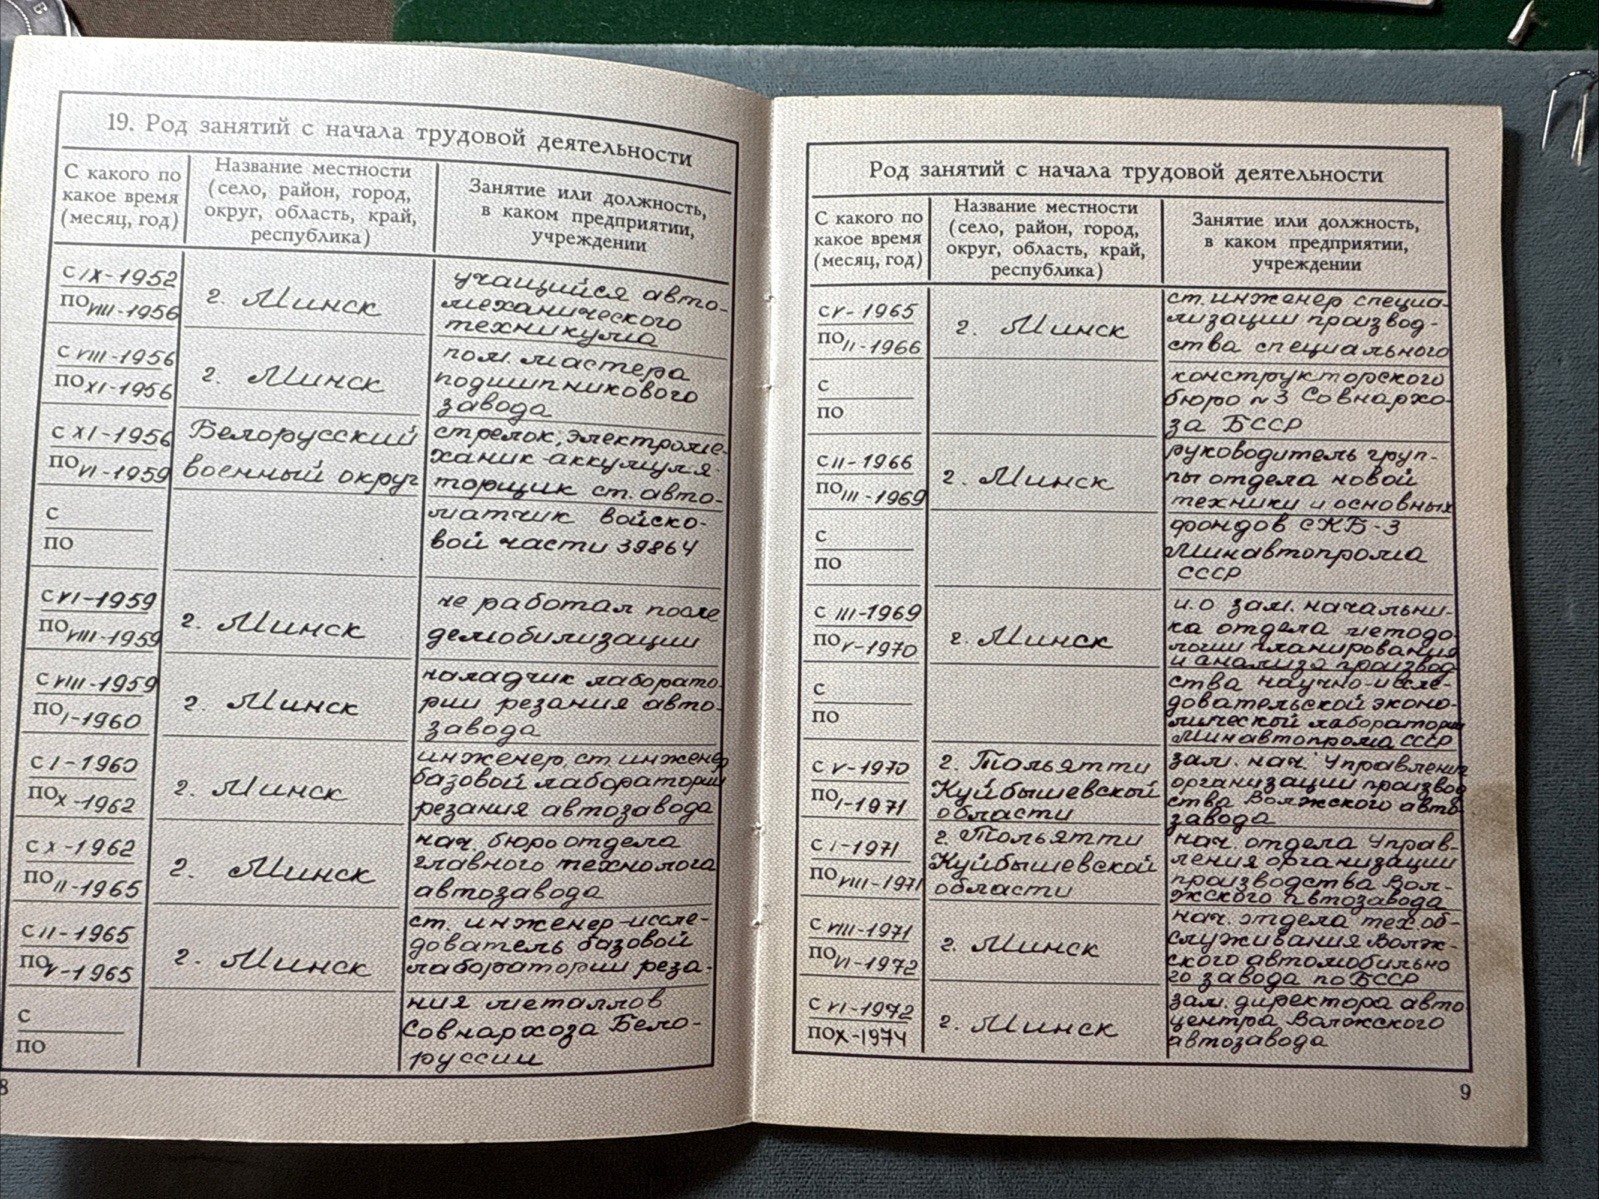 19. Род занятий с начала трудовой деятельности
С какого по
какое время
(месяц, год)
Название местности
(село, район, город,
округ, область, край,
республика)
Занятие или должность,
в каком предприятии,
учреждении
с IX-1952
по VIII-1956
г. Минск
учащийся авто-
механического
техникума
с VIII-1956
по XI-1956
г. Минск
пом. мастера
подшипникового
завода
с XI-1956
по VI-1959
Белорусский
военный округ
стрелок, электроме-
ханик-аккумуля-
торщик ст. авто-
с
по
матчик войско-
вой части 39864
с VI-1959
по VIII-1959
г. Минск
не работал после
демобилизации
с VIII-1959
по I-1960
г. Минск
наладчик лаборато-
рии резания авто-
завода
с I-1960
по X-1962
г. Минск
инженер, ст. инженер
базовой лаборатории
резания автозавода
с X-1962
по II-1965
г. Минск
нач. бюро отдела
главного технолога
автозавода
с II-1965
по V-1965
г. Минск
ст. инженер-иссле-
дователь базовой
лаборатории реза-
с
по
ния металлов
Совнархоза Бело-
руссии
8
Род занятий с начала трудовой деятельности
С какого по
какое время
(месяц, год)
Название местности
(село, район, город,
округ, область, край,
республика)
Занятие или должность,
в каком предприятии,
учреждении
с V-1965
по II-1966
г. Минск
ст. инженер специа-
лизации производ-
ства специального
с
по
конструкторского
бюро №3 Совнархо-
за БССР
с II-1966
по III-1969
г. Минск
руководитель груп-
пы отдела новой
техники и основных
с
по
фондов СКБ-3
Минавтопрома
СССР
с III-1969
по V-1970
г. Минск
и.о зам. начальни-
ка отдела методо-
логии планирования
и анализа производ-
с
по
ства научно-иссле-
довательской эконо-
мической лаборатории
Минавтопрома СССР
с V-1970
по I-1971
г. Тольятти
Куйбышевской
области
зам. нач. Управления
организации производ-
ства Волжского авто-
завода
с I-1971
по VIII-1971
г. Тольятти
Куйбышевской
области
нач. отдела Управ-
ления организации
производства Вол-
жского автозавода
с VIII-1971
по VI-1972
г. Минск
нач. отдела тех.об-
служивания Волж-
ского автомобильно
го завода по БССР
с VI-1972
по X-1974
г. Минск
зам. директора авто
центра Волжского
автозавода
9